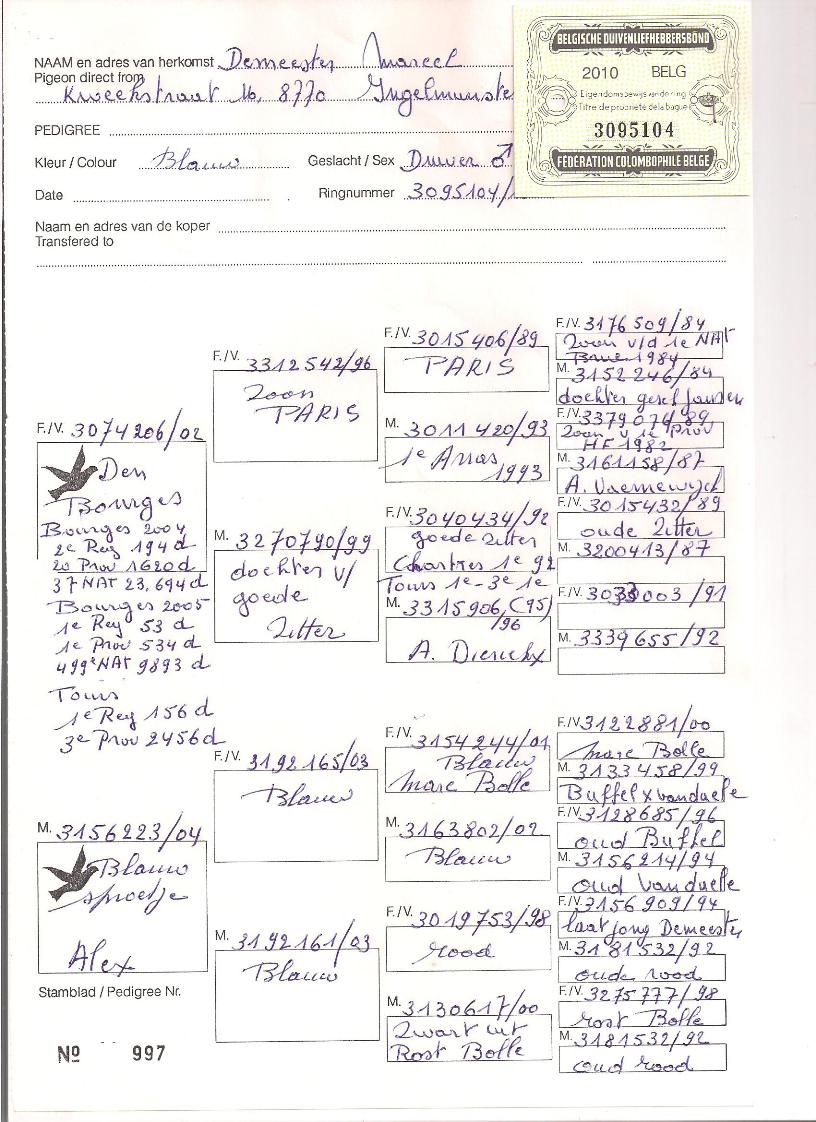 NAAM en adres van herkomst Demeester Marcel
Pigeon direct from
Kweekstraat 16, 8770 Ingelmunste
PEDIGREE
Kleur / Colour Blauw Geslacht / Sex Duiver ♂
Date Ringnummer 3095104/
Naam en adres van de koper
Transfered to
BELGISCHE DUIVENLIEFHEBBERSBOND
2010 BELG
Eigendomsbewijs van de ring
Titre de propriété de la bague
3095104
FÉDÉRATION COLOMBOPHILE BELGE
F./V. 3074206/02
Den
Bourges
Bourges 2004
2e Reg 194 d
20 Prov 1620 d
37 NAT 23,694 d
Bourges 2005
1e Reg 53 d
1e Prov 534 d
499e NAT 9893 d
Tours
1e Reg 156 d
3e Prov 2456 d
M. 3156223/04
Blauw
sproetje
Alex
Stamblad / Pedigree Nr.
Nº 997
F./V. 3312542/96
Zoon
PARIS
M. 3270790/99
dochter v/
goede
Zitter
F./V. 3192165/03
Blauw
M. 3192161/03
Blauw
F./V. 3015406/89
PARIS
M. 3011420/93
1e Arras
1993
F./V. 3040434/92
goede zitter
Chartres 1e 92
Tours 1e-3e 1e
M. 3315906 (95)
/96
A. Dierickx
F./V. 3154244/01
Blauw
Marc Bolle
M. 3163802/02
Blauw
F./V. 3019753/98
rood
M. 3130617/00
Zwart uit
Rost Bolle
F./V. 3176509/84
Zoon v/d 1e NAT
1984
M. 3152246/84
dochter Janssen
F./V. 3379074/89
Zoon v 1e Prov
HF 1982
M. 3161158/87
A. Vaernewyck
F./V. 3015432/89
oude Zitter
M. 3200413/87
F./V. 3033003/91
M. 3339655/92
F./V. 3122881/00
Marc Bolle
M. 3133458/99
Buffel x vanduele
F./V. 3128685/96
oud Buffel
M. 3156214/94
oud Vanduele
F./V. 3156909/94
laat jong Demeester
M. 3181532/92
oude rood
F./V. 3275777/98
rost Bolle
M. 3181532/92
oud rood